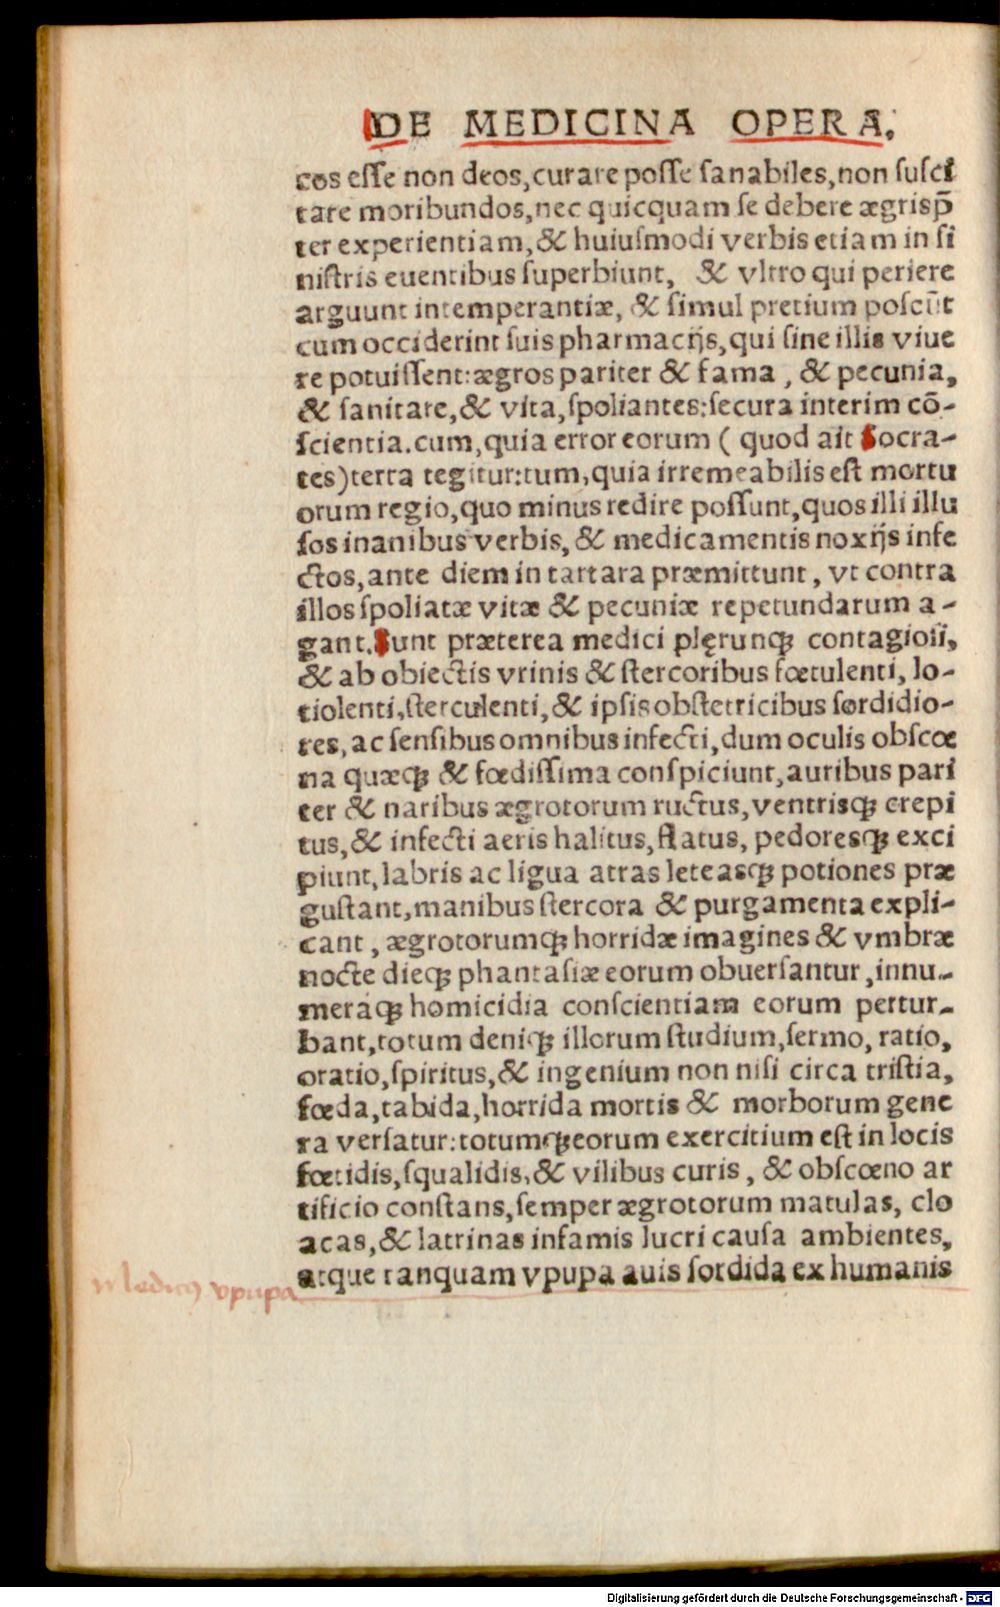 DE MEDICINA OPERA.
cos eſſe non deos, curare poſſe ſanabiles, non ſuſci
tare moribundos, nec quicquam ſe debere ægrisp̄
ter experientiam, & huiuſmodi verbis etiam in ſi
niſtris euentibus ſuperbiunt, & vltro qui periere
arguunt intemperantiæ, & ſimul pretium poſcūt
cum occiderint ſuis pharmacijs, qui ſine illis viue
re potuiſſent: ægros pariter & fama, & pecunia,
& ſanitate, & vita, ſpoliantes: ſecura interim cō-
ſcientia. cum, quia error eorum ( quod ait Socra-
tes) terra tegitur: tum, quia irremeabilis eſt mortu
orum regio, quo minus redire poſſunt, quos illi illu
ſos inanibus verbis, & medicamentis noxijs infe
ctos, ante diem in tartara præmittunt, vt contra
illos ſpoliatæ vitæ & pecuniæ repetundarum a-
gant. Sunt præterea medici plęrunqꝫ contagioſi,
& ab obiectis vrinis & ſtercoribus fœtulenti, lo-
tiolenti, ſterculenti, & ipſis obſtetricibus ſordidio-
res, ac ſenſibus omnibus infecti, dum oculis obſcœ
na quæqꝫ & fœdiſſima conſpiciunt, auribus pari
ter & naribus ægrotorum ructus, ventrisqꝫ crepi
tus, & infecti aeris halitus, flatus, pedoresqꝫ exci
piunt, labris ac ligua atras leteasqꝫ potiones præ
guſtant, manibus ſtercora & purgamenta expli-
cant, ægrotorumqꝫ horridæ imagines & vmbræ
nocte dieqꝫ phantaſiæ eorum obuerſantur, innu-
meraqꝫ homicidia conſcientiam eorum pertur-
bant, totum deniqꝫ illorum ſtudium, ſermo, ratio,
oratio, ſpiritus, & ingenium non niſi circa triſtia,
fœda, tabida, horrida mortis & morborum gene
ra verſatur: totumqꝫ eorum exercitium eſt in locis
fœtidis, ſqualidis, & vilibus curis, & obſcœno ar
tificio conſtans, ſemper ægrotorum matulas, clo
acas, & latrinas infamis lucri cauſa ambientes,
atque tanquam vpupa auis ſordida ex humanis
Medicus vpupa
Digitalisierung gefördert durch die Deutsche Forschungsgemeinschaft - DFG